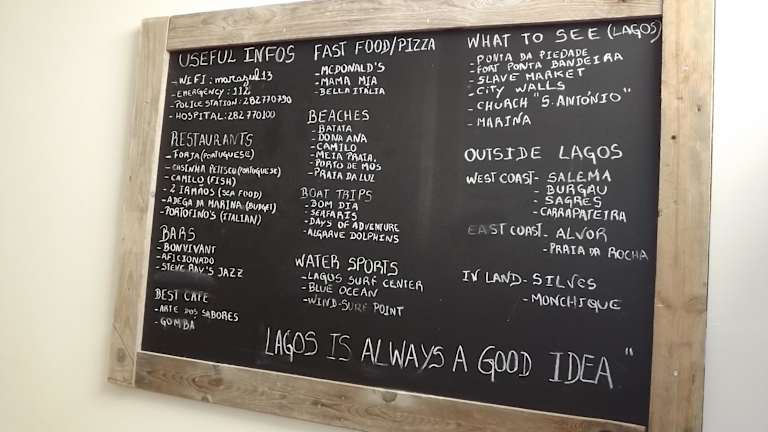 USEFUL INFOS
- WIFI: marazul13
- EMERGENCY: 112
- POLICE STATION: 282770790
- HOSPITAL: 282 770100
RESTAURANTS
- FORJA (PORTUGUESE)
- CASINHA PETISCO (PORTUGUESE)
- CAMILO (FISH)
- 2 IRMÃOS (SEA FOOD)
- ADEGA DA MARINA (BUDGET)
- PORTOFINO'S (ITALIAN)
BARS
- BONVIVANT
- AFICIONADO
- STEVIE RAY'S JAZZ
BEST CAFE
- ARTE DOS SABORES
- GOMBÁ
FAST FOOD/PIZZA
- MCDONALD'S
- MAMA MIA
- BELLA ITÁLIA
BEACHES
- BATATA
- DONA ANA
- CAMILO
- MEIA PRAIA
- PORTO DE MOS
- PRAIA DA LUZ
BOAT TRIPS
- BOM DIA
- SEAFARIS
- DAYS OF ADVENTURE
- ALGARVE DOLPHINS
WATER SPORTS
- LAGOS SURF CENTER
- BLUE OCEAN
- WIND-SURF POINT
WHAT TO SEE (LAGOS)
- PONTA DA PIEDADE
- FORT PONTA BANDEIRA
- SLAVE MARKET
- CITY WALLS
- CHURCH "S. ANTÓNIO"
- MARINA
OUTSIDE LAGOS
WEST COAST - SALEMA
- BURGAU
- SAGRES
- CARRAPATEIRA
EAST COAST - ALVOR
- PRAIA DA ROCHA
IN LAND - SILVES
- MONCHIQUE
LAGOS IS ALWAYS A GOOD IDEA "